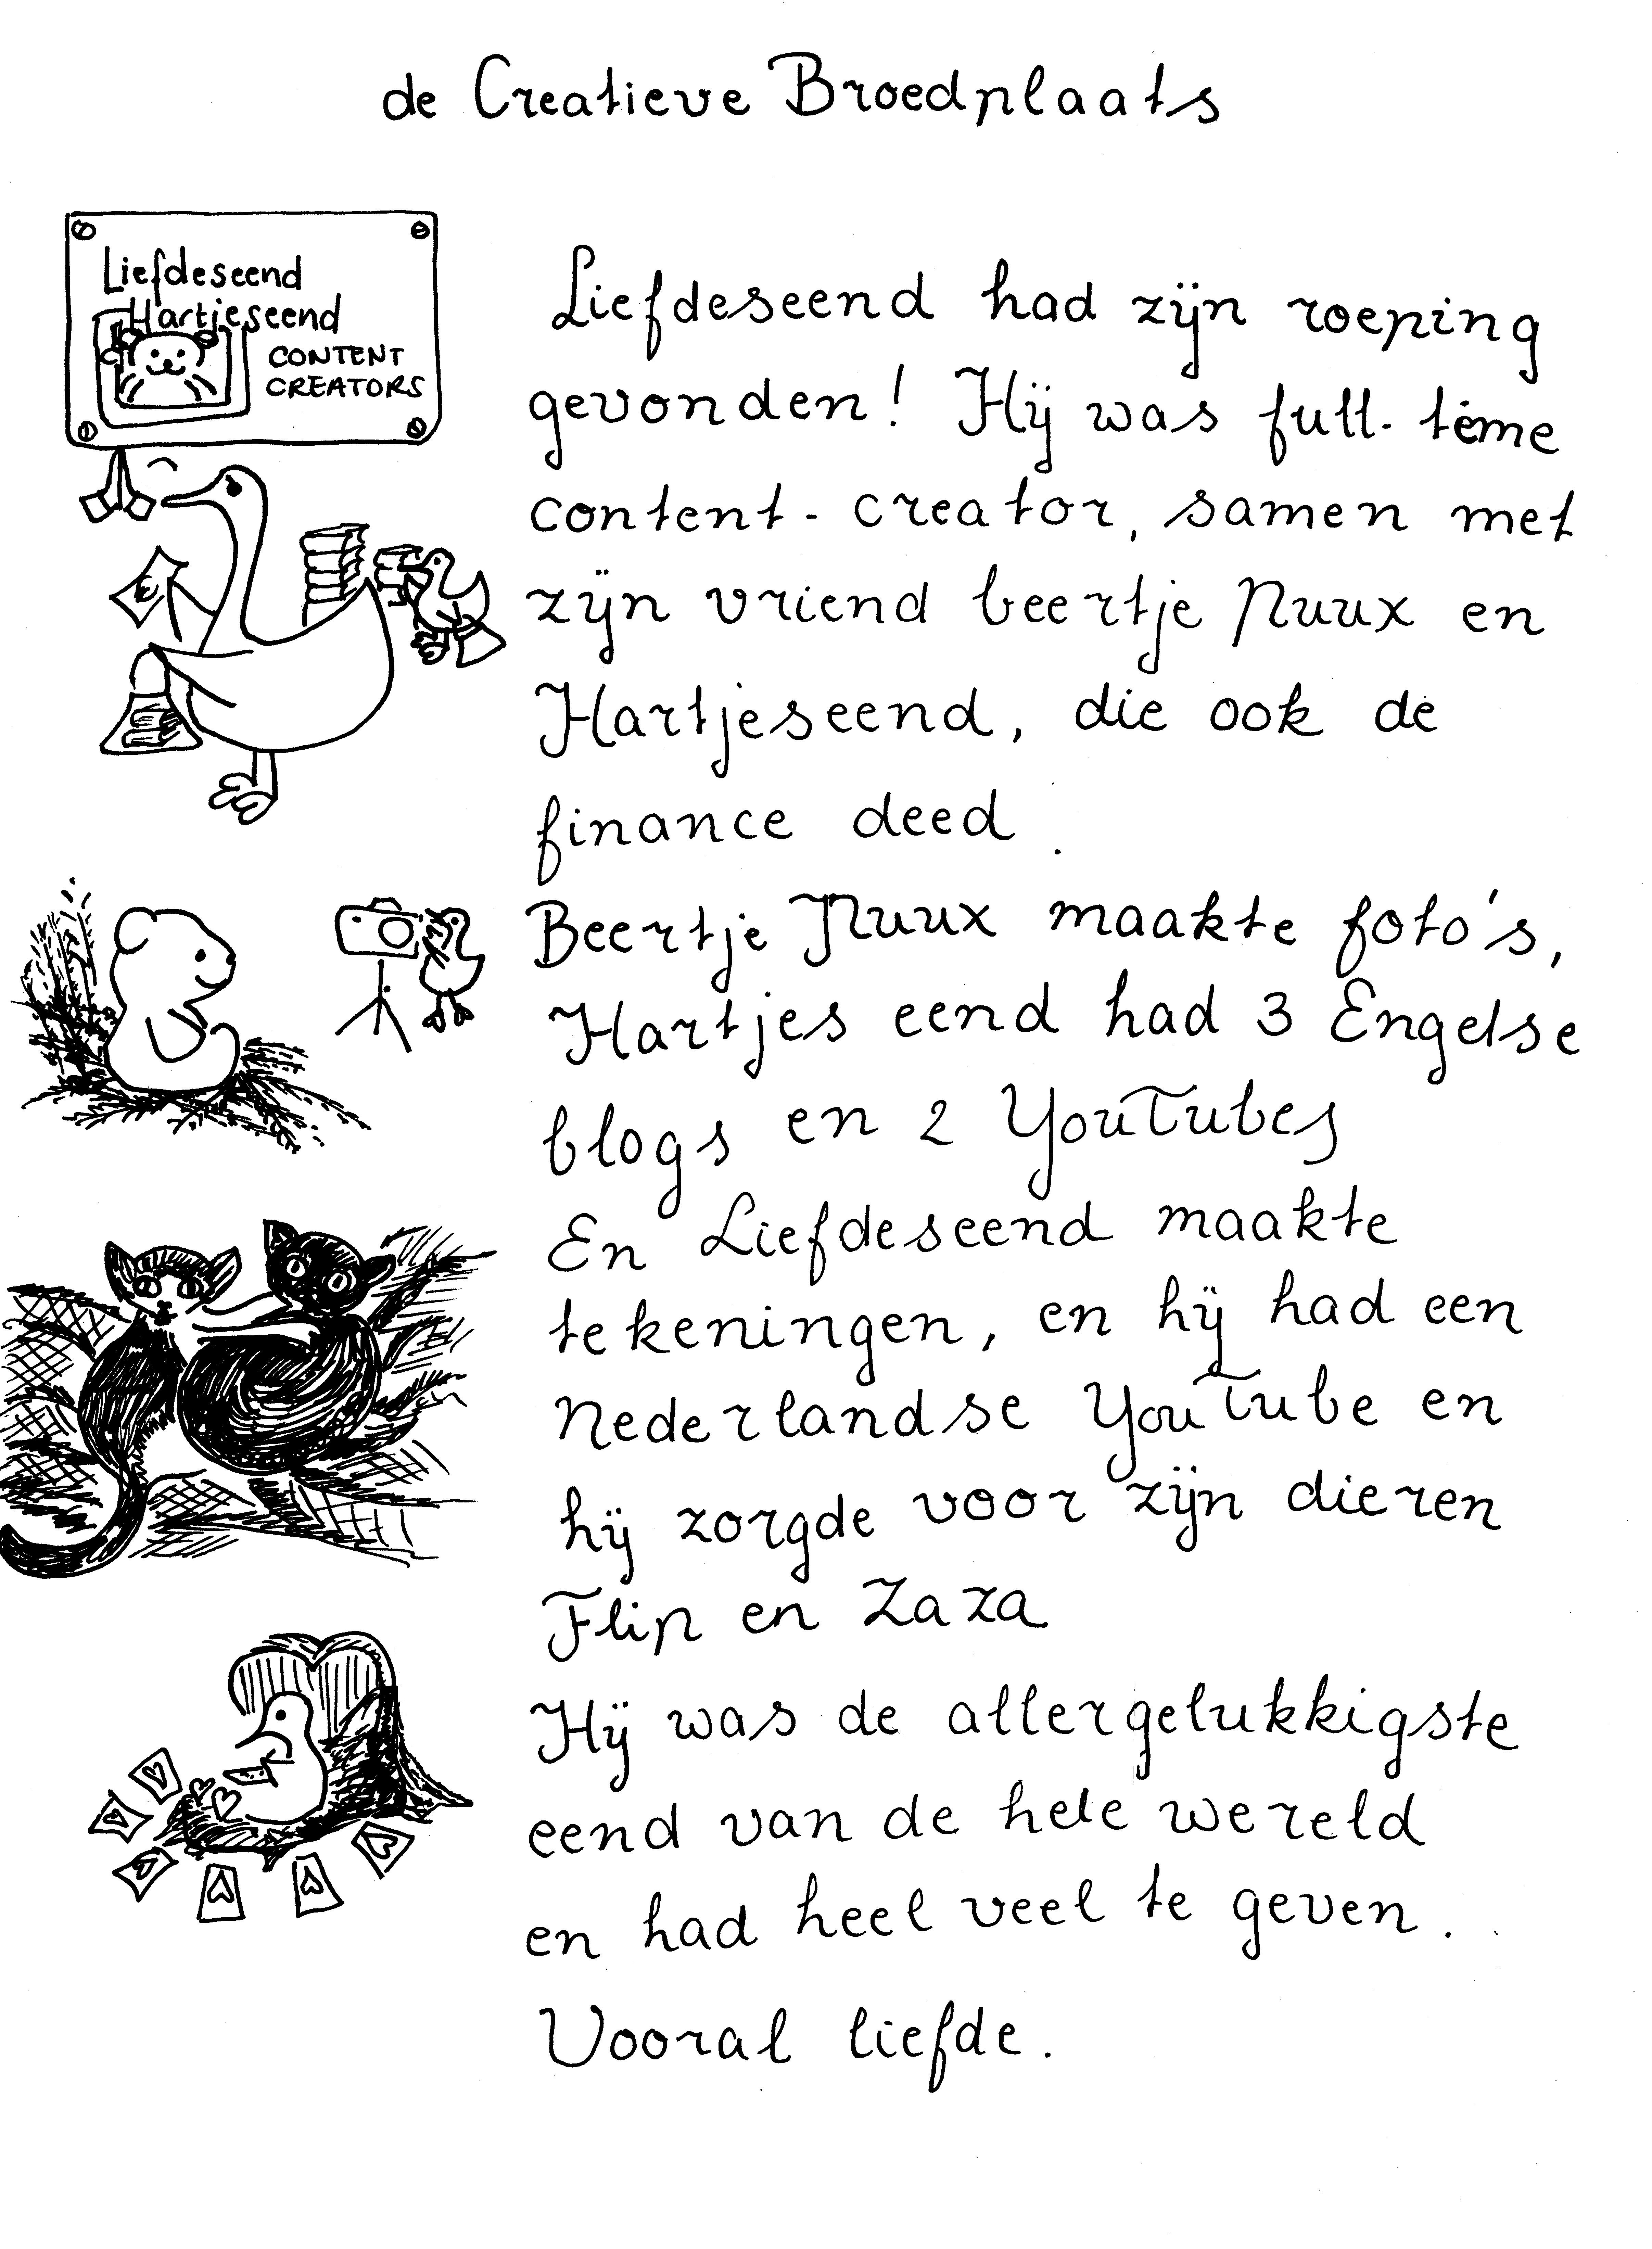 de Creatieve Broedplaats
Liefdeseend
Hartjeseend
CONTENT
CREATORS
Liefdeseend had zijn roeping
gevonden! Hij was full-time
content-creator, samen met
zijn vriend beertje Nuux en
Hartjeseend, die ook de
finance deed.
Beertje Nuux maakte foto's,
Hartjes eend had 3 Engelse
blogs en 2 YouTubes
En Liefdeseend maakte
tekeningen, en hij had een
Nederlandse YouTube en
hij zorgde voor zijn dieren
Flip en Zaza
Hij was de allergelukkigste
eend van de hele wereld
en had heel veel te geven.
Vooral liefde.